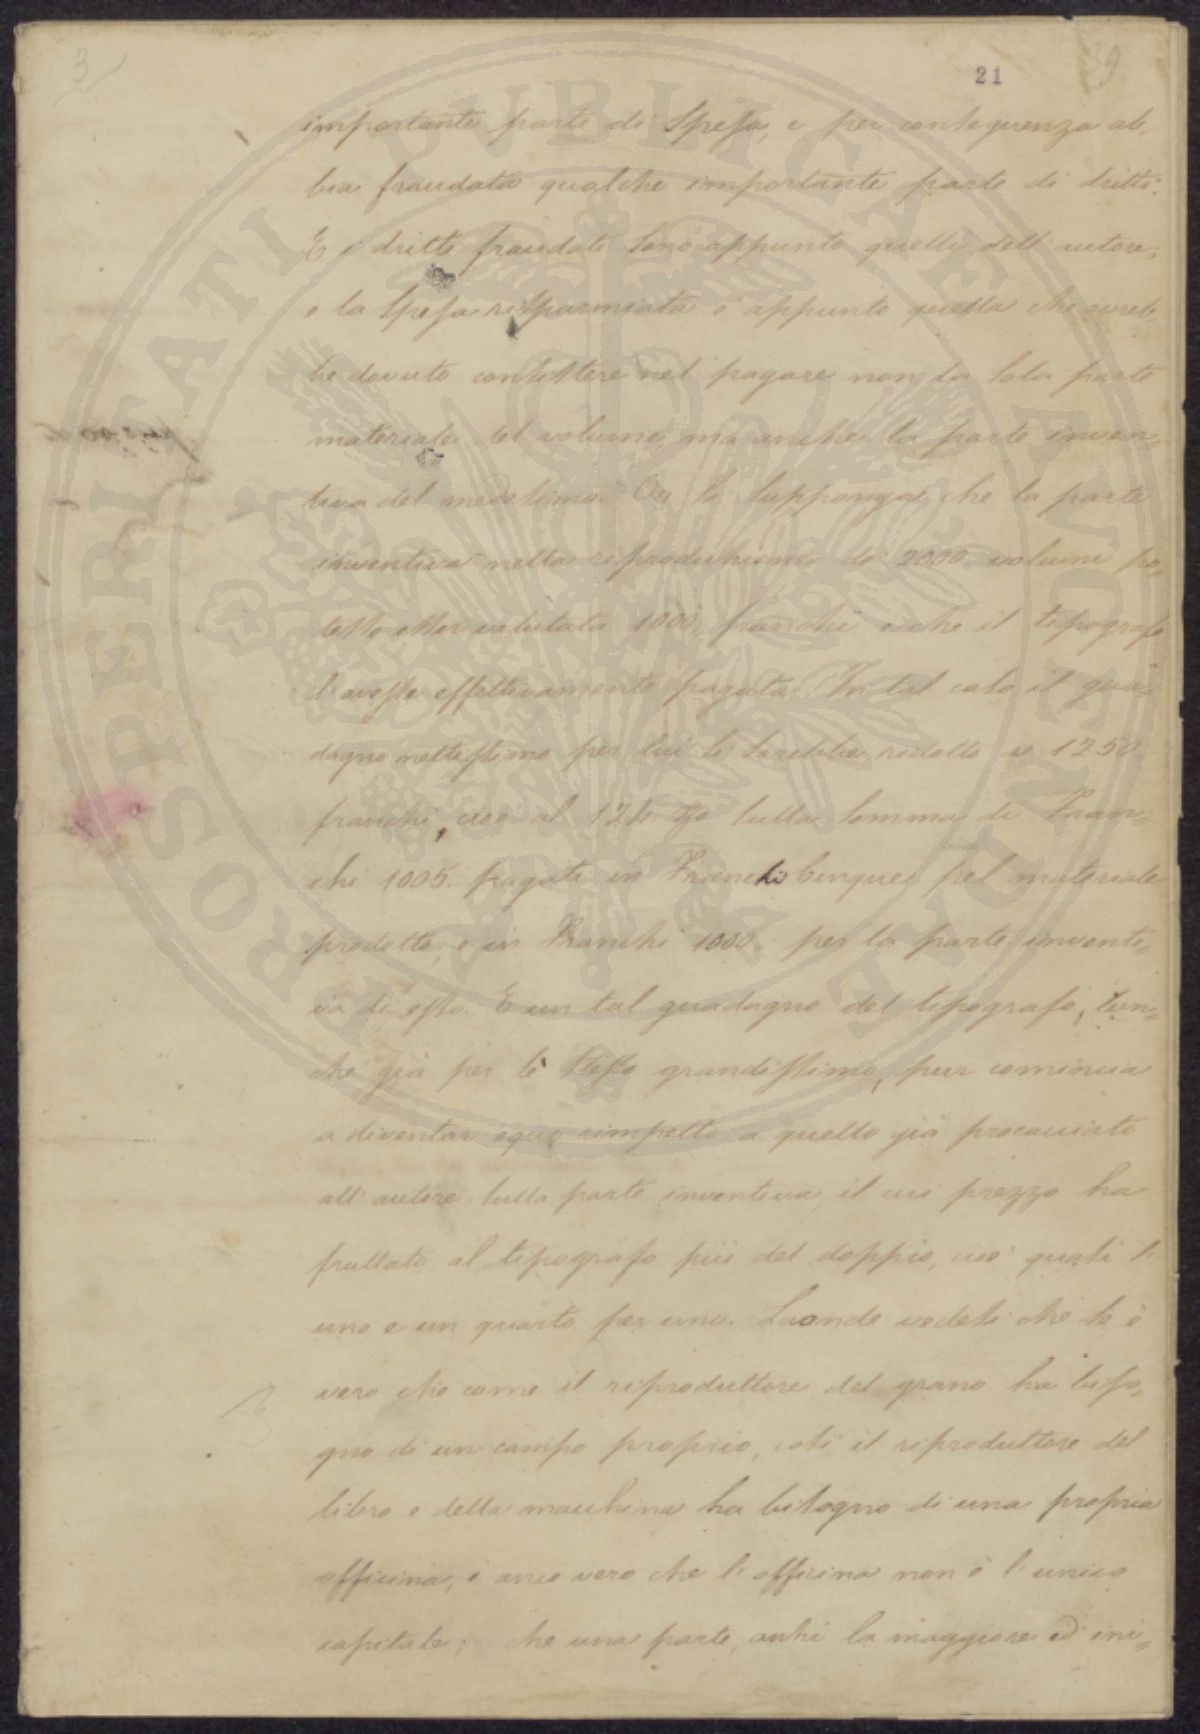 3
21
39
importante parte di Spesa, e per conseguenza ab,
bia fraudata qualche importante parte di dritti.
E i dritti fraudati sono appunto quelli dell'autore,
e la Spesa risparmiata è appunto quella che avreb,
be dovuto consistere nel pagare non la sola parte
materiale del volume, ma anche la parte inven=
tiva del medesimo. Or si supponga che la parte
inventiva nella riproduzione di 2000 volumi po=
tesse esser valutata 1000 franchi e che il tipografo
l'avesse effettivamente pagata. In tal caso il gua=
dagno nettissimo per lui si sarebbe ridotto a 1250
franchi, cioè al 124 % sulla somma di Fran=
chi 1005. pagati in Franchi Cinque pel materiale
prodotto, e in Franchi 1000. per la parte inventi=
va di esso. E un tal guadagno del tipografo, ben=
chè già per sè stesso grandissimo, pur comincia
a diventar equo rimpetto a quello già procacciato
all'autore sulla parte inventiva, il cui prezzo ha
fruttato al tipografo più del doppio, cioè quasi l'
uno e un quarto per uno. Laonde vedesi che se è
vero che come il riproduttore del grano ha biso,
gno di un campo proprio, così il riproduttore del
libro e della macchina ha bisogno di una propria
officina, è anco vero che l'officina non è l'unico
capitale; che una parte, anzi la maggiore ed ini=
PROSPERITATI PVBLICAE AVGENDAE